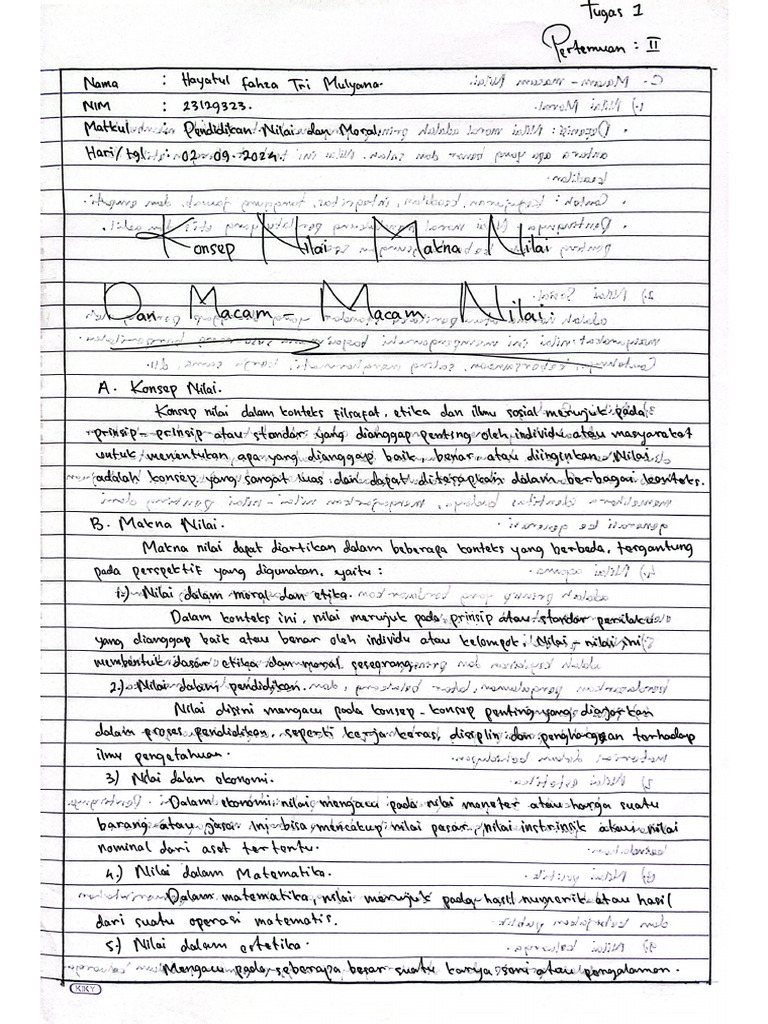 Tugas 1
Pertemuan : II
Nama : Hayatul Fahza Tri Mulyana.
NIM : 23129323.
Matkul : Pendidikan Nilai dan Moral.
Hari/tgl : 02.09.2024
Konsep Nilai Makna Nilai
Dan Macam-Macam Nilai.
A. Konsep Nilai.
Konsep nilai dalam konteks filsafat, etika dan ilmu sosial merujuk pada
prinsip-prinsip atau standar yang dianggap penting oleh individu atau masyarakat
untuk menentukan apa yang dianggap baik, benar atau diinginkan. Nilai
adalah konsep yang sangat luas dan dapat diterapkan dalam berbagai konteks.
B. Makna Nilai.
Makna nilai dapat diartikan dalam beberapa konteks yang berbeda, tergantung
pada perspektif yang digunakan, yaitu :
1.) Nilai dalam moral dan etika.
Dalam konteks ini, nilai merujuk pada prinsip atau standar perilaku
yang dianggap baik atau benar oleh individu atau kelompok. Nilai-nilai ini
membentuk dasar etika dan moral seseorang.
2.) Nilai dalam pendidikan.
Nilai disini mengacu pada konsep-konsep penting yang diajarkan
dalam proses pendidikan, seperti kerja keras, disiplin dan penghargaan terhadap
ilmu pengetahuan.
3) Nilai dalam ekonomi.
Dalam ekonomi, nilai mengacu pada nilai moneter atau harga suatu
barang atau jasa. Ini bisa mencakup nilai pasar, nilai instrinsik atau nilai
nominal dari aset tertentu.
4.) Nilai dalam Matematika.
Dalam matematika, nilai merujuk pada hasil numerik atau hasil
dari suatu operasi matematis.
5.) Nilai dalam estetika.
Mengacu pada seberapa besar suatu karya seni atau pengalaman.
KIKY